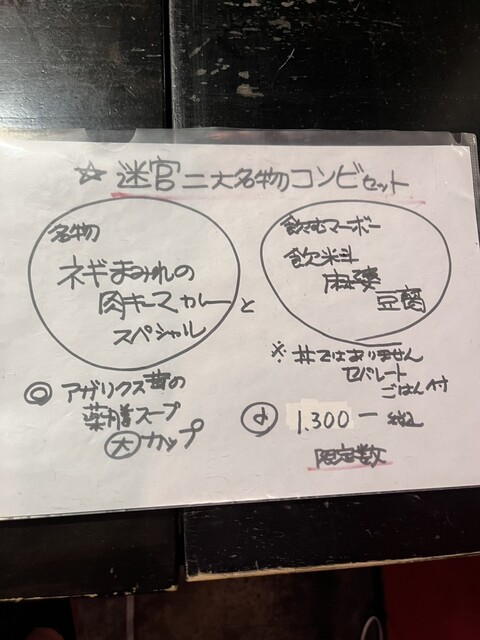 ☆ 迷宮二大名物コンビセット
名物
ネギまみれの
肉キーマカレー
スペシャル
と
飲むマーボー
飲料
麻婆
豆腐
※丼ではありません
セパレート
ごはん付
◎ アガリクス茸の
薬膳スープ
大カップ
1,300ー 税込
限定数